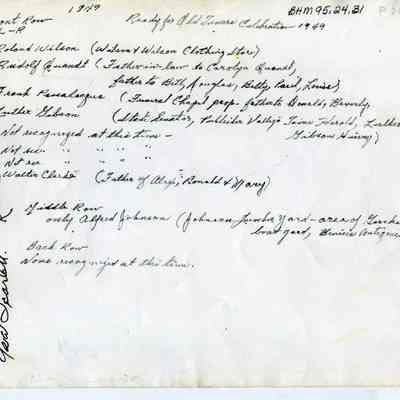 1949
Ready for Old Timers Celebration 1949
BHM 95.24.31
Front Row
L-R
Roland Wilson (Wilson & Wilson Clothing Store)
Rudolf Quandt (Father-in-law to Carolyn Quandt,
father to Bill, Douglas, Betty, Paul, Louise)
Frank Passalacqua (Funeral Chapel prop. father to Donald, Beverly,
Luther Gibson (State Senator, Publisher Vallejo Times Herald, Luther
Gibson
Not recognized at this time -
Not rec " " "
Not rec " " "
Walter Clarke (Father of Ronald & Mary)
Middle Row
only Alfred Johnson (Johnson Lumber Yard - area of
boat yard, Benicia
Back Row
None recognized at this time.